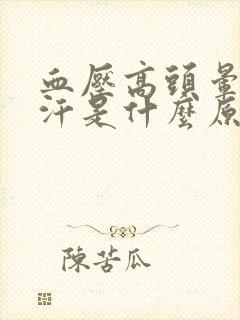 血壓高頭暈
汗是什麼原
陳苦瓜